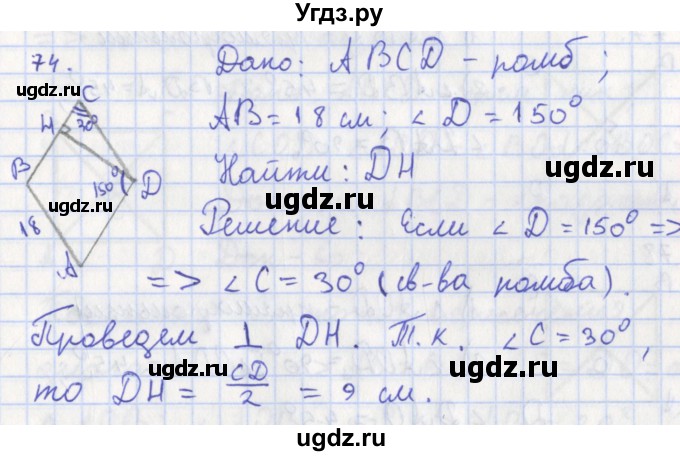 Угдз.ру
74.
Дано: ABCD - ромб;
AB = 18 см; ∠D = 150°
Найти: DH
Решение: Если ∠D = 150° =>
=> ∠C = 30° (св-ва ромба).
Проведем ⊥ DH. Т.к. ∠C = 30°,
то DH = CD/2 = 9 см.
C
H
30°
B
150°
D
18
A
ugdz.ru
ugdz.ru
ugdz.ru
ugdz.ru
ugdz.ru
ugdz.ru
ugdz.ru
ugdz.ru
ugdz.ru